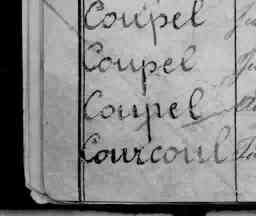 Coupel
Coupel
Coupel
Courcoul